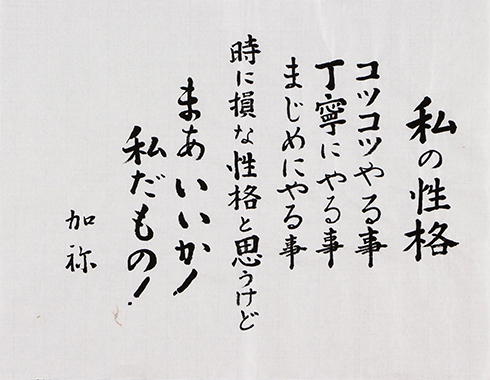 私の性格
コツコツやる事
丁寧にやる事
まじめにやる事
時に損な性格と思うけど
まあいいか!
私だもの!
加祢